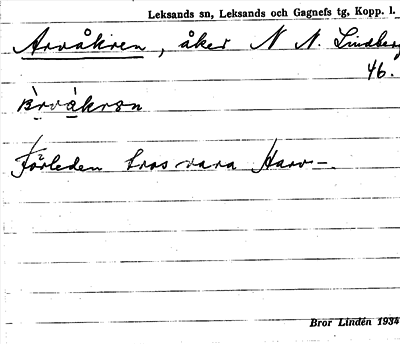 Leksands sn, Leksands och Gagnefs tg, Kopp. l.
Arvåkren, åker N N. Lindberg
46.
àrvàkrən
Förleden tros vara Harv-.
Bror Lindén 1934